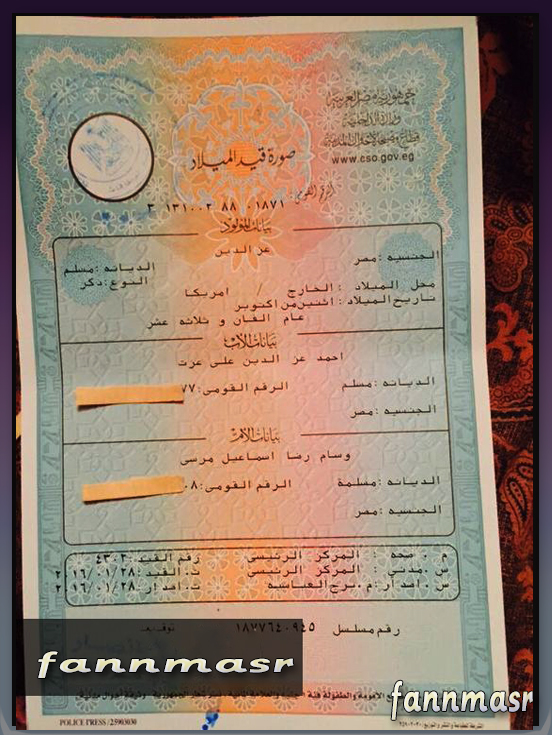 جمهورية مصر العربية
وزارة الداخلية
قطاع مصلحة الأحوال المدنية
www.cso.gov.eg
صورة قيد الميلاد
الرقم القومى
٣ ١٣١٠٠٢ ٨٨ ٠١٨٧١
بيانات المولود
عز الدين
الجنسيه : مصر
الديانه : مسلم
محل الميلاد : الخارج / امريكا
النوع : ذكر
تاريخ الميلاد : اثنين من اكتوبر
عام الفان و ثلاثه عشر
بيانات الأب
احمد عز الدين على عزت
الديانه : مسلم
الرقم القومى : ٧٧
الجنسيه : مصر
بيانات الأم
وسام رضا اسماعيل مرسى
الديانه : مسلمة
الرقم القومى : ٠٨
الجنسيه : مصر
م . صحه : المركز الرئيسى
رقم القيد : ٤٣٠٢
س . مدنى : المركز الرئيسى
ت . القيد : ٢٠١٦/٠١/٢٨
س . اصدار : م . برج العباسيه
ت . اصدار : ٢٠١٦/٠١/٢٨
رقم مسلسل ١٨٧٧٦٤٠٩٤٥
توقيع
fannmasr
fannmasr
POLICE PRESS / 25903030